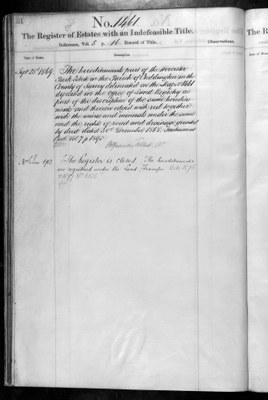 No. 1461
The Register of Estates with an Indefeasible Title.
Reference, Vol. 5 p. 16 Record of Title.
Observations.
Date of Entry.
Description.
Sept 21st 1869. The hereditaments part of the Worcester
Park Estate in the Parish of Cheddington in the
County of Surrey delineated on the Map No
deposited in the Office of Land Registry as
part of the description of the same heredita-
ments and therein edged with red together
with the mines and minerals under the same
and the rights of road and drainage granted
by deed dated 30th November 1865. Instrument
Book Vol. 7 p
The Register is closed. The hereditaments
are registered under the Land Transfer